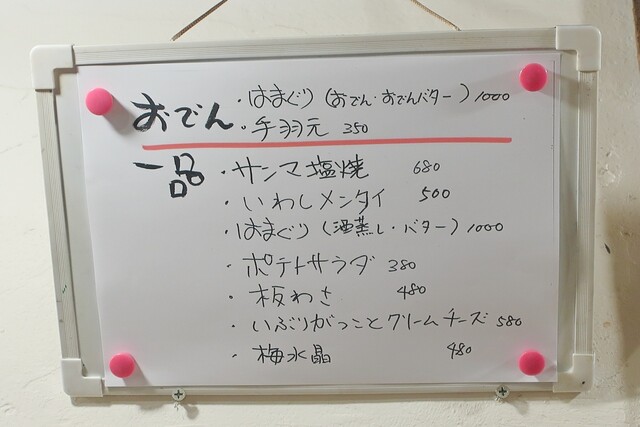 おでん ・はまぐり(おでん・おでんバター) 1000
・手羽元 350
一品 ・サンマ塩焼 680
・いわしメンタイ 500
・はまぐり(酒蒸し・バター) 1000
・ポテトサラダ 380
・板わさ 480
・いぶりがっことクリームチーズ 580
・梅水晶 480